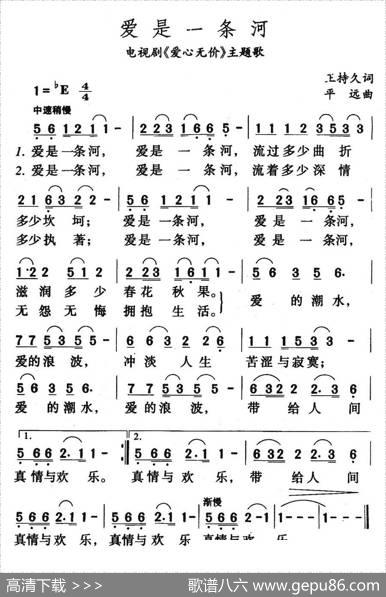 爱是一条河
电视剧《爱心无价》主题歌
1=♭E 4/4
王持久词
平 远曲
中速稍慢
5 6 1 2 1 1 - | 2 2 3 1 6 6 5 - | 1 1 2 2 1 2 2
1. 爱是一条河, 爱是 一 条河, 流过多少曲 折
2. 爱是一条河, 爱是 一 条河, 流着多少深 情
2 1 6 3 2 2 - | 2 2 3 1 6 6 5 - | 2 2 3 1 6 6 5 -
多少坎 坷; 爱是 一 条河, 爱是 一 条河,
多少执 著; 爱是 一 条河, 爱是 一 条河,
1·2 2 5 1 2 | 2 2 3 2 1 6 1 - | 5 6 3 5 6·
滋润多 少 春花 秋果。 爱 的潮水,
无怨无悔 拥抱 生活。
7 7 5 3 5 5 - | 6 6 3 2 2 6 2 - | 1 1 5 5 3 3 -
爱的浪 波, 冲淡 人生 苦涩与寂寞;
5 6 3 5 6· | 7 7 5 3 5 5 - | 6 3 2 2 2·3 6
爱 的潮水, 爱的浪波, 带 给人 间
1. 2.
5 6 6 2·1 1 - :| 5 6 6 2·1 1 - | 6 3 2 2 2·3 6
真情与欢 乐。 真情与欢 乐, 带 给人 间
渐慢
5 6 6 2·1 1 | 5 6 6 2·1 1 | 5 6 6 2·1 | 1 - - - | 1 - - - ‖
真情与欢 乐, 真情与欢 乐 真情与欢 乐。
高清下载 >>>
歌谱八六 www.gepu86.com